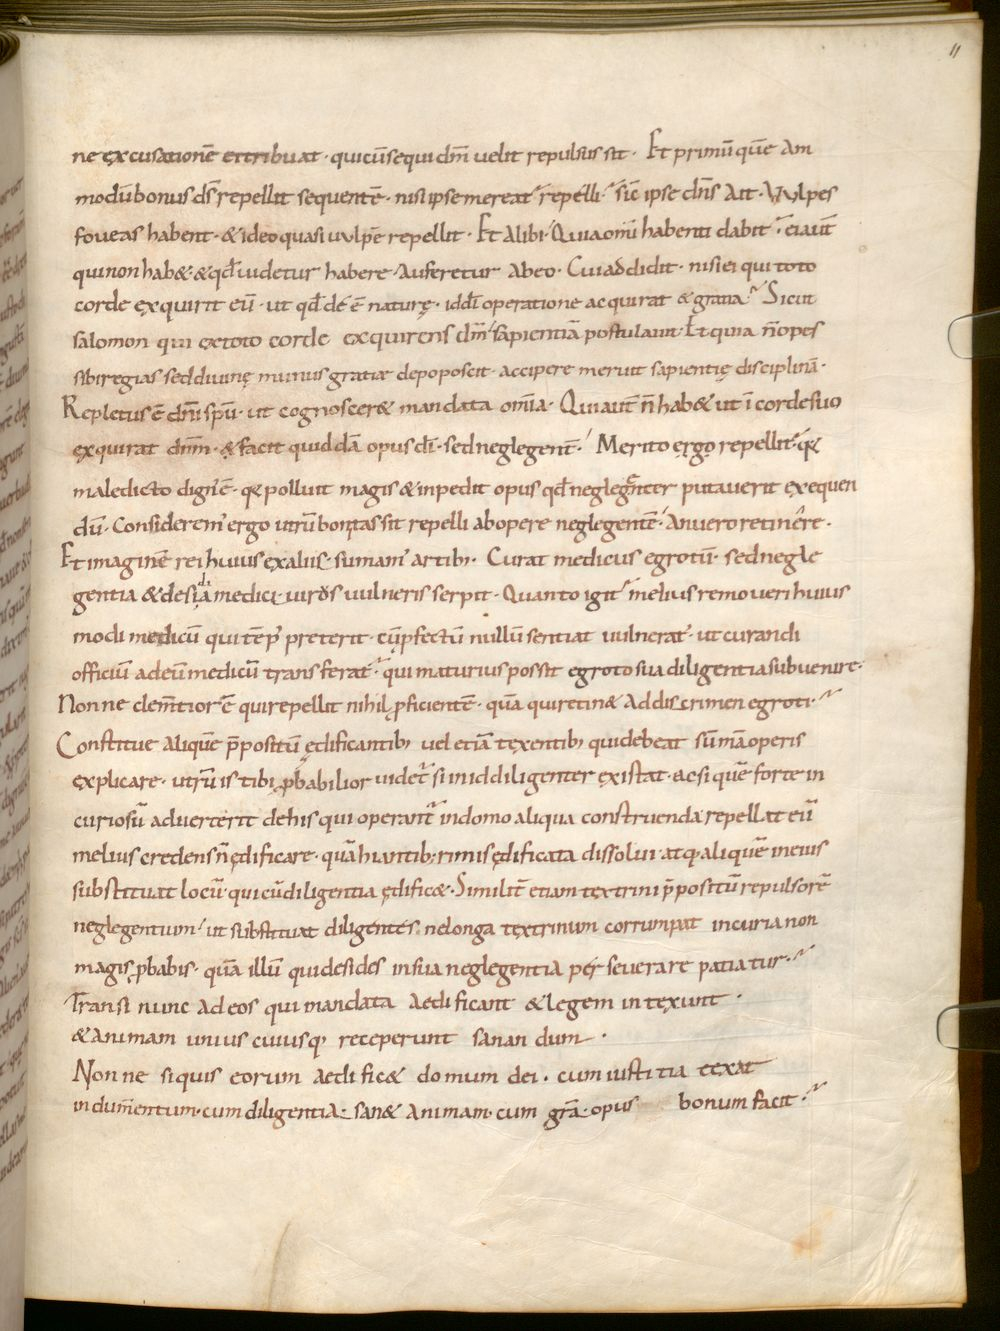 11
ne excusationē ettribuat · quicū sequi dn̄m uelit repulsus sit · Et primū quē am
modū bonus ds̄ repellit sequentē · nisi ipse mereat᷑ repelli · sic̄ ipse dn̄s ait · Vulpes
foueas habent · & ideo quasi uulpē repellit · Et alibi · Quia omī habenti dabit᷑ · ei aut̄
qui non hab& & qd̄ uidetur habere · auferetur ab eo · Cui addidit · nisi ei qui toto
corde exquirit eū · ut qd̄ dei ē naturę · id dī operatione acquirat & gratia · Sicut
salomon qui ex toto corde exquirens dn̄m sapientiā postulauit · Et quia n̄ opes
sibi regias sed diuinę munus gratiae depoposcit · accipere meruit sapientię disciplinā ·
Repletus ē dn̄i spū · ut cognoscer& mandata om̄ia · Qui aut̄ n̄ hab& ut ī corde suo
exquirat dn̄m · & facit quiddā opus dī · sed neglegent̄ · Merito ergo repellit᷑ · qa
maledicto dign̄ ē · qa polluit magis & inpedit opus qd̄ neglegenter putauerit exequen
dū · Consideremꝰ ergo utrū bonitas sit repelli ab opere neglegentē · an uero retinere ·
Et imaginē rei huius ex aliis sumamꝰ artibꝰ · Curat medicus egrotū · sed negle
gentia & desidia medici uirus uulneris serpit · Quanto igit᷑ melius remoueri huius
modi medicū qui tēpꝰ preterit · cū ꝓfectū nullū sentiat uulneratꝰ · ut curandi
officiū ad eū medicū transferat᷑ · qui maturius possit egroto sua diligentia subuenire ·
Nonne clem̄tior ē qui repellit nihil ꝓficientē · quā qui retin& ad discrimen egroti ·
Constitue aliquē p̄positū ędificantibꝰ uel etiā texentibꝰ qui debeat sūmā operis
explicare · utrū is tibi ꝓbabilior uidet᷑ si minꝰ diligenter existat · ac si quē forte in
curiosū aduerterit de his qui operant᷑ in domo aliqua construenda repellat eū
melius credens n̄ ędificare · quā hiantibꝰ rimis ędificata dissolui · atq aliquē in eius
substituat locū · qui cū diligentia ędific& · Similit̄ etiam textrini p̄positū repulsorē
neglegentium · ut substituat diligentes · ne longa textrinum corrumpat incuria non
magis ꝓbabis · quā illū qui desides in sua neglegentia perseuerare patiatur ·
Transi nunc ad eos qui mandata aedificant & legem intexunt ·
& animam unius cuiusq receperunt sanandum ·
Nonne siquis eorum aedific& domum dei · cum iustitia texat
indum̄entum · cum diligentia san& animam · cum grā opus bonum facit ·